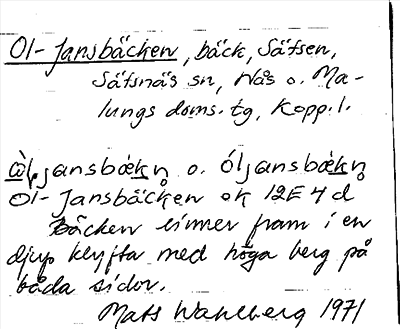 Ol-Jansbäcken, bäck, Sätsen,
Säfsnäs sn, Nås o. Ma-
lungs doms. tg, Kopp. l.
o. óljansbækn̥
Ol-Jansbäcken ek 12E 4 d
Bäcken rinner fram i en
djup klyfta med höga berg på
båda sidor.
Mats Wahlberg 1971